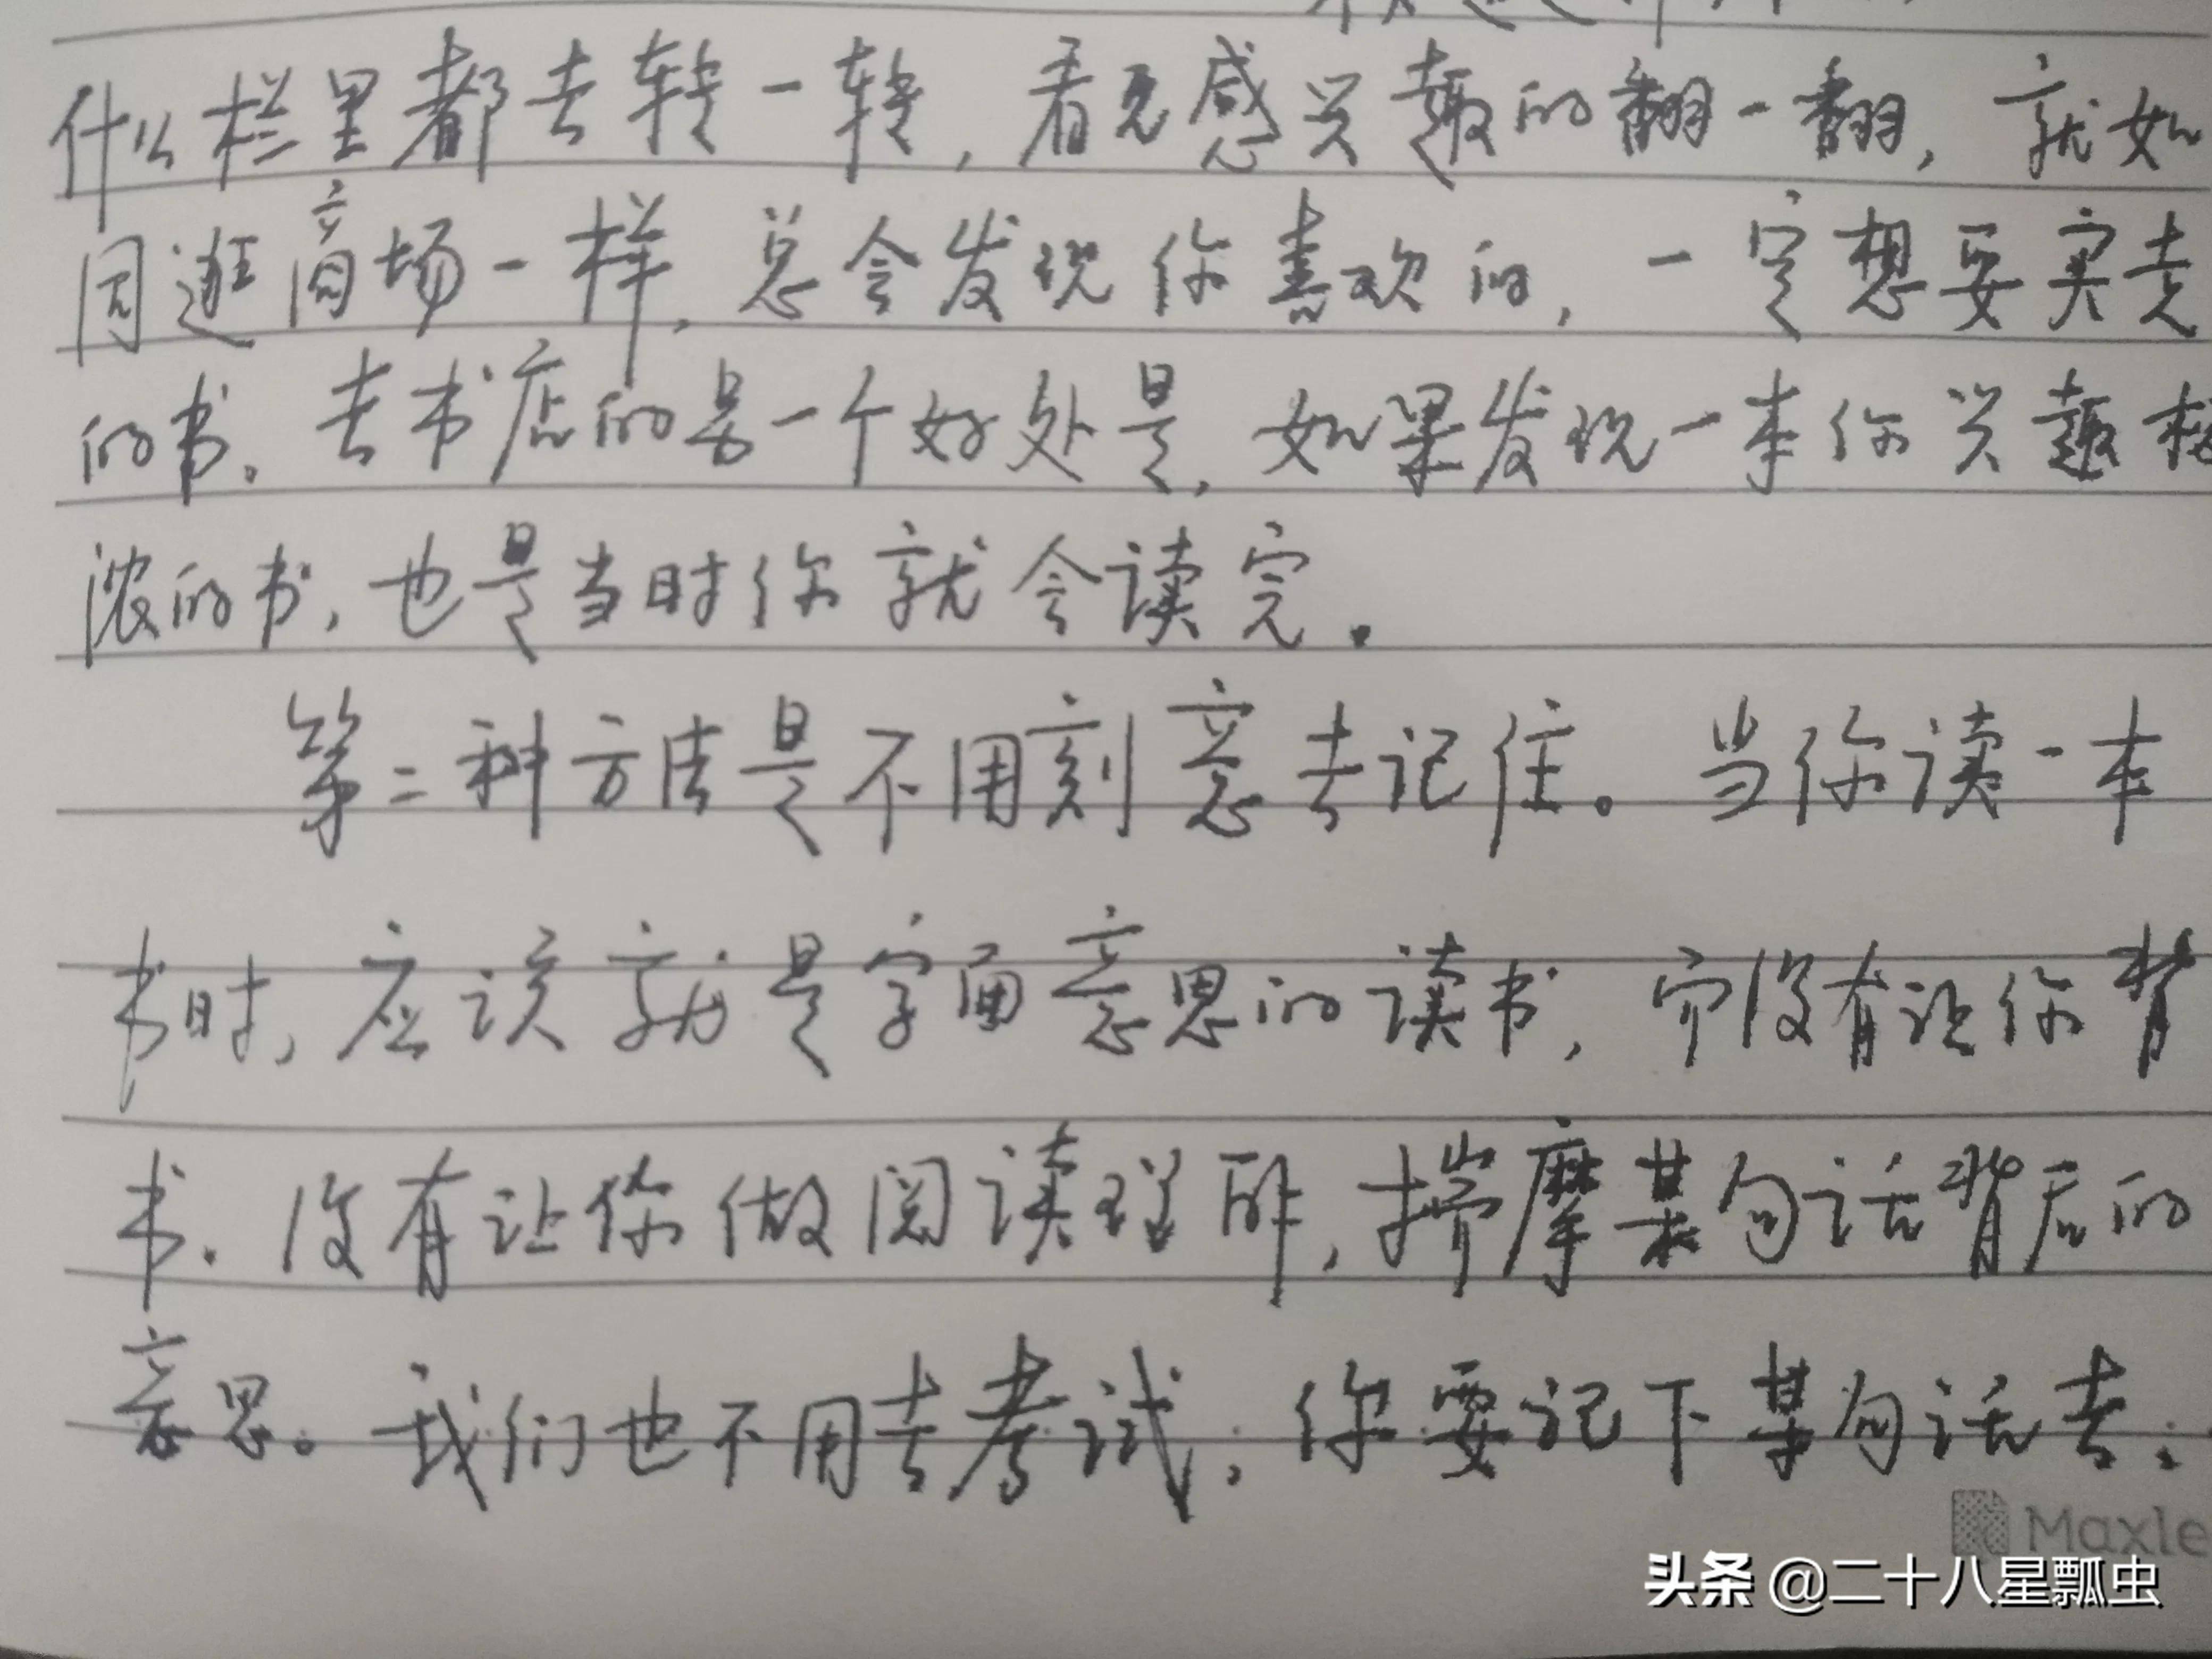 什么栏里都去转一转，看见感兴趣的翻一翻，就如
同逛商场一样，总会发现你喜欢的，一定想要买走
的书。去书店的另一个好处是，如果发现一本你兴趣极
浓的书，也是当时你就会读完。
第二种方法是不用刻意去记住。当你读一本
书时，应该就是字面意思的读书，它没有让你背
书．没有让你做阅读理解，揣摩某句话背后的
意思。我们也不用去考试，你要记下某句话去
Maxle
头条 @二十八星瓢虫